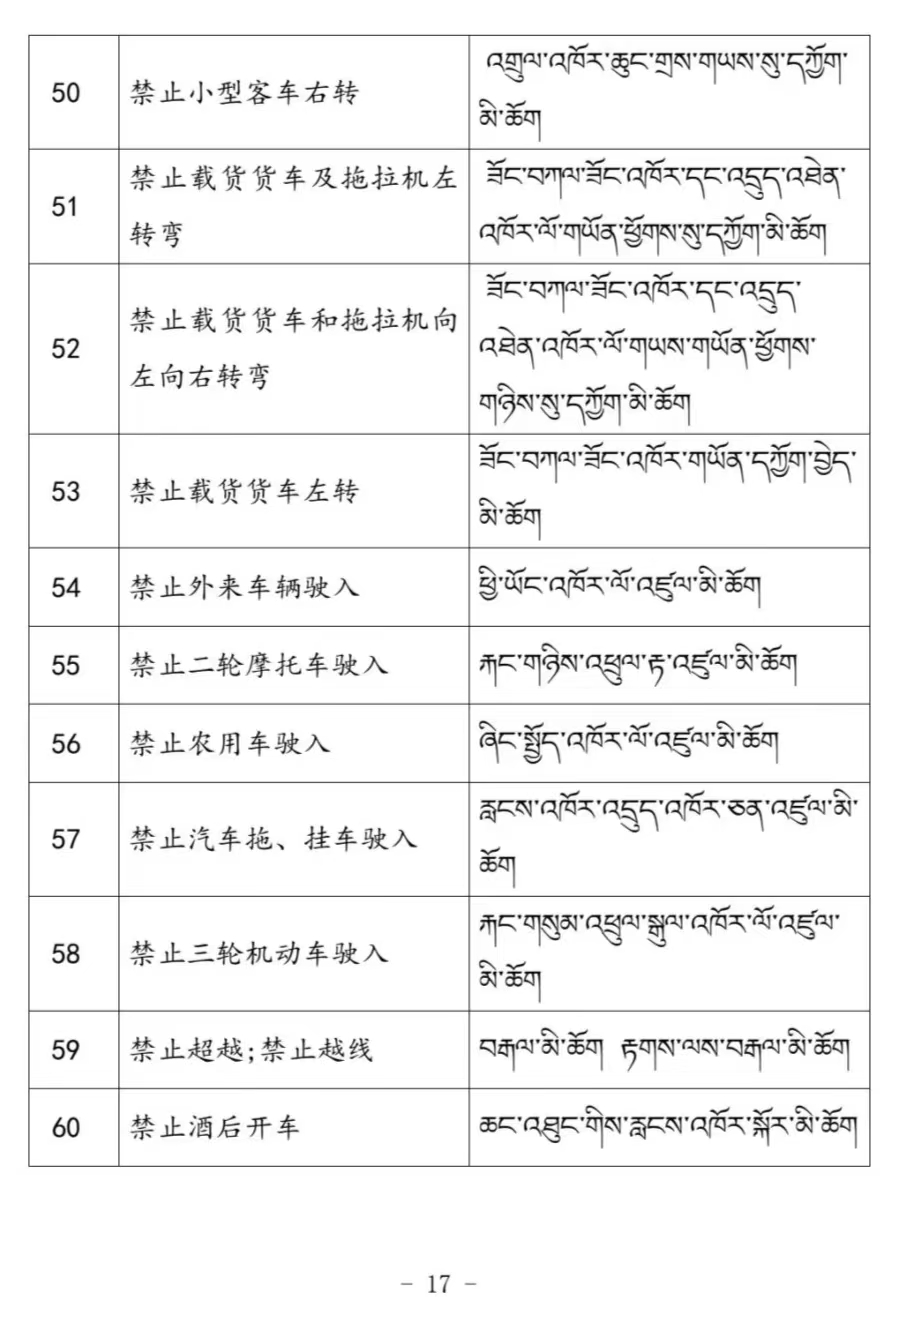 50
禁止小型客车右转
འགྲུལ་འཁོར་ཆུང་གྲས་གཡས་སུ་དཀྱོག་
མི་ཆོག
51
禁止载货货车及拖拉机左
转弯
ཟོང་བཀལ་ཟོང་འཁོར་དང་འདྲུད་འཐེན་
འཁོར་ལོ་གཡོན་ཕྱོགས་སུ་དཀྱོག་མི་ཆོག
52
禁止载货货车和拖拉机向
左向右转弯
ཟོང་བཀལ་ཟོང་འཁོར་དང་འདྲུད་
འཐེན་འཁོར་ལོ་གཡས་གཡོན་ཕྱོགས་
གཉིས་སུ་དཀྱོག་མི་ཆོག
53
禁止载货货车左转
ཟོང་བཀལ་ཟོང་འཁོར་གཡོན་དཀྱོག་བྱེད་
མི་ཆོག
54
禁止外来车辆驶入
ཕྱི་ཡོང་འཁོར་ལོ་འཛུལ་མི་ཆོག
55
禁止二轮摩托车驶入
རྐང་གཉིས་འཕྲུལ་རྟ་འཛུལ་མི་ཆོག
56
禁止农用车驶入
ཞིང་སྤྱོད་འཁོར་ལོ་འཛུལ་མི་ཆོག
57
禁止汽车拖、挂车驶入
རླངས་འཁོར་འདྲུད་འཁོར་ཅན་འཛུལ་མི་
ཆོག
58
禁止三轮机动车驶入
རྐང་གསུམ་འཕྲུལ་སྒུལ་འཁོར་ལོ་འཛུལ་
མི་ཆོག
59
禁止超越;禁止越线
བརྒལ་མི་ཆོག རྟགས་ལས་བརྒལ་མི་ཆོག
60
禁止酒后开车
ཆང་འཐུང་གིས་རླངས་འཁོར་སྐོར་མི་ཆོག
- 17 -